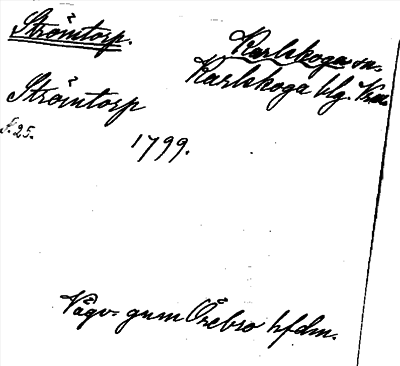 Strömtorp.
Karlskoga sn.
Karlskoga blg. Krn
Strömtorp
S. 25.
1799.
Vägv. gnm Örebro hfdm.